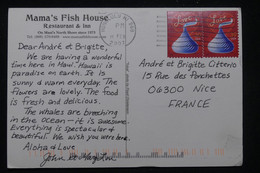 Mama's Fish House
Restaurant & Inn
On Maui's North Shore since 1973
Dear André et Brigitte,
We are having a wonderful
time here in Maui. Hawaii is
paradise on earth. It is
sunny & warm everyday. The
flowers are lovely. The food
is fresh and delicious.
The whales are breeching
in the ocean - it is awesome.
Everything is spectacular &
beautiful. We wish you were here.
Aloha & Love
John
André et Brigitte Gitterio
15 Rue des Ponchettes
06300 Nice
FRANCE